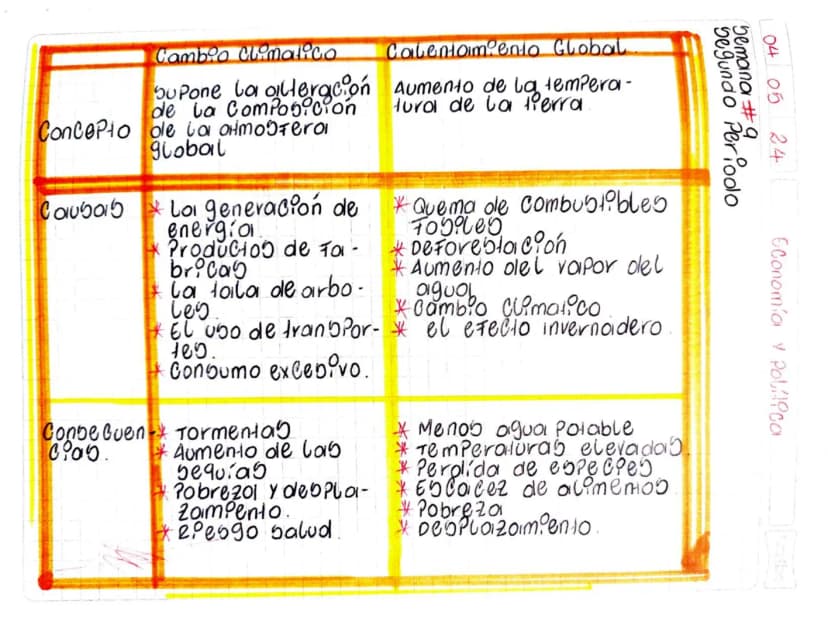 Cambio Climatico
Calentamiento Global
Concepto
supone la alteración
de la Composición
de la atmosfera
global
Aumento de la tempera-
tura de la tierra
Causas
* La generación de
energía
* Productos de fa-
bricas
* La tala de arbo-
les
* El uso de transpor-
tes.
* Consumo excesivo.
* Quema de combustibles
fosiles
* Deforestación
* Aumento del vapor del
agua
* Cambio Climatico
* el efecto invernadero
Consecuen-
cias.
* Tormentas
* Aumento de las
sequías
* Pobreza y despla-
zamiento.
* Riesgo salud
* Menos agua potable
* Temperaturas elevadas
* Perdida de especies
* Escacez de alimentos
* Pobreza
* Desplazamiento
Semana #9
Segundo Periodo
04 05 24
Economía y Política